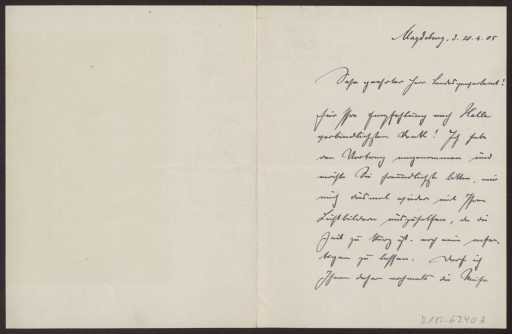 Magdeburg, d. 20.4.05
Sehr geehrter Herr Landesgeologe!
Für Ihre Empfehlung nach Halle
verbindlichsten Dank! Ich habe
den Vortrag angenommen und
möchte Sie freundlichst bitten, mir
auch diesmal wieder mit Ihren
Lichtbildern auszuhelfen, da die
Zeit zu kurz ist, noch neue
zu lassen. Darf ich
Ihnen daher nochmals die